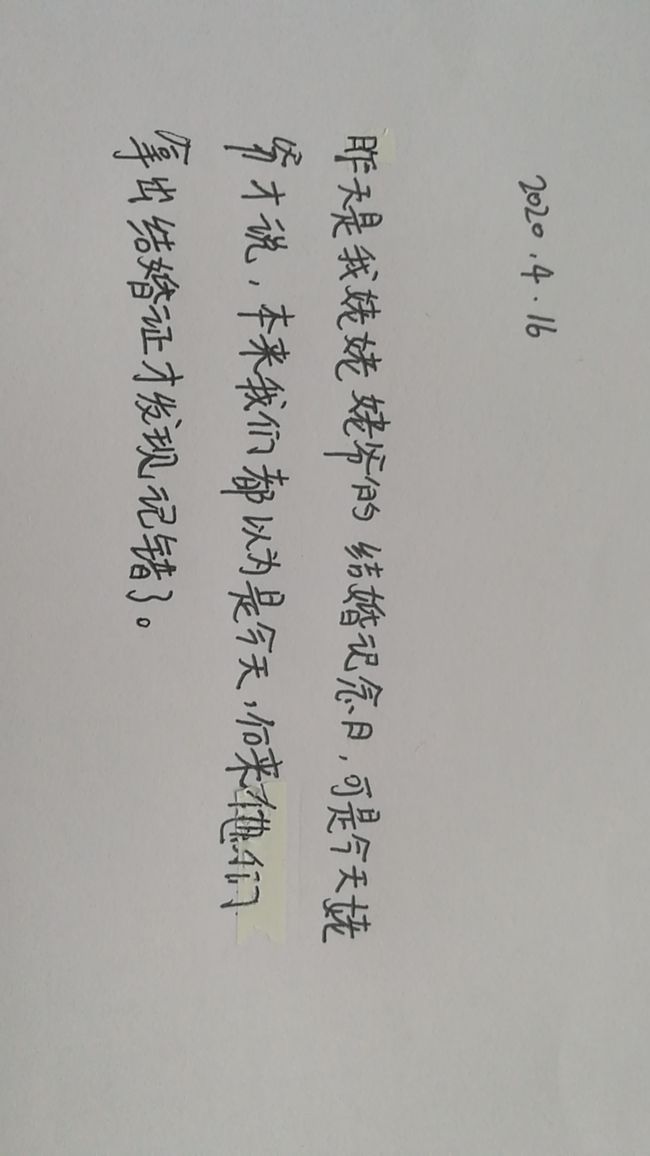 2020.4.16
昨天是我姥姥姥爷的结婚记念日，可是今天姥
爷才说，本来我们都以为是今天，后来他们
拿出结婚证才发现记错了。